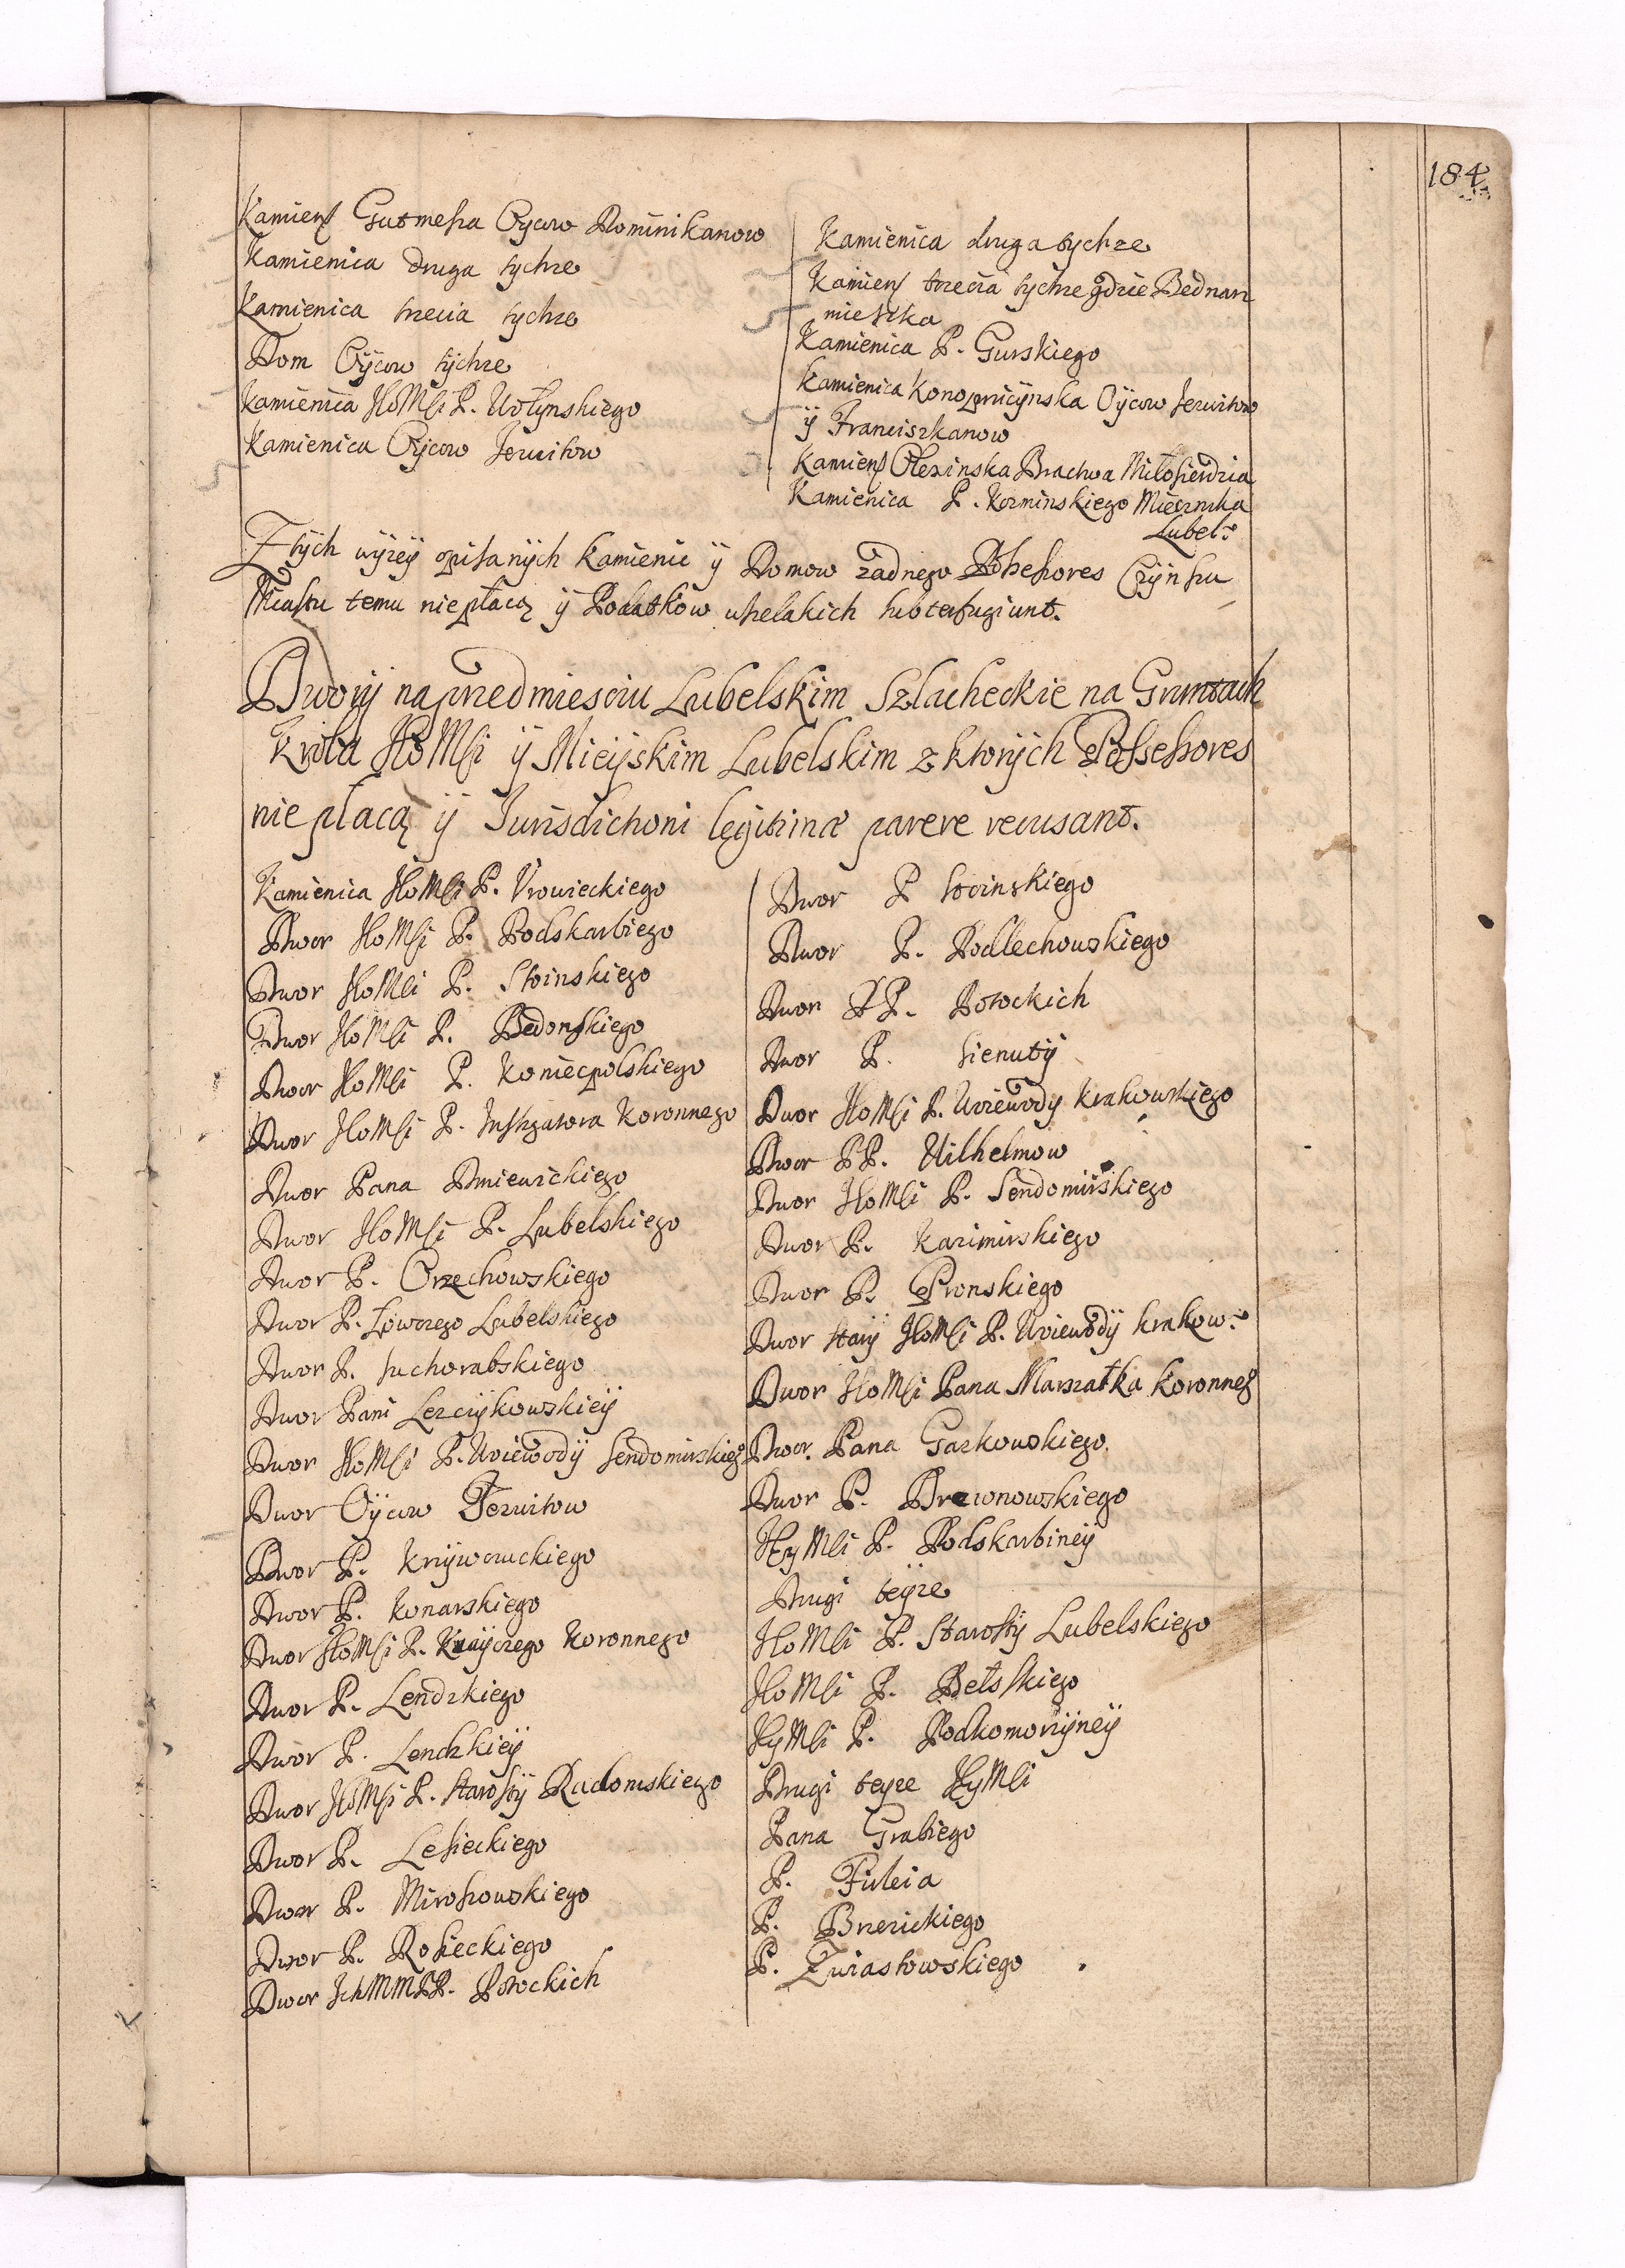 184
Kamien Gutmesra Oycow Dominikanow
Kamienica druga tychze
Kamienica trzecia tychze
Dom Oÿcow tÿchze
Kamienica JIoMsci P. Wołynskiego
Kamienica Oÿcow Jezuitow
Kamienica druga tychze
Kamien trzecia tychze gdzie Bednarz
mieszka
Kamienica P. Gurskiego
Kamienica Konopnicÿnska Oÿcow Jezuitow
ÿ Franciszkanow
Kamien Olexinska Bractwa Miłosierdzia
Kamienica P. Kozminskiego Miecznika
Lubel:
Z tÿch wÿzeÿ opisanÿch Kamienic ÿ Domow zadnego Possessores Czÿnszu
Miastu temu niepłacą ÿ Podatkow wszelakich subterfugiunt.
Dworÿ na przedmiesciu Lubelskim Szlacheckie na Gruntach
Krola JoMsci ÿ Mieÿskim Lubelskim z ktorÿch Possessores
nie płacą ÿ Jurisdictioni legitimæ parere recusant.
Kamienica JoMsci P. Urowieckiego
Dwor JoMsci P. Podskarbiego
Dwor JoMsci P. Stoinskiego
Dwor JoMsci P. Bedonskiego
Dwor JoMsci P. Koniecpolskiego
Dwor JoMsci P. Instigatora Koronnego
Dwor Pana Dmiewickiego
Dwor JoMsci P. Lubelskiego
Dwor P. Orzechowskiego
Dwor P. Łowczego Lubelskiego
Dwor P. Suchorabskiego
Dwor Pani Lezcÿkowskieÿ
Dwor JoMsci P. Woiewodÿ Sendomirskieg
Dwor Oÿcow Jezuitow
Dwor P. Krzÿwczuckiego
Dwor P. Konarskiego
Dwor JoMsci P. Kraÿczego Koronnego
Dwor P. Lendzkiego
Dwor P. Lendzkieÿ
Dwor JoMsci P. Starostÿ Radomskiego
Dwor P. Lesieckiego
Dwor P. Miroszowskiego
Dwor P. Rosieckiego
Dwor JchMMPP. Potockich
Dwor P Stoinskiego
Dwor P. Podlechowskiego
Dwor PP. Potockich
Dwor P. Sienutÿ
Dwor JoMsci P. Woiewody Krakowskiego
Dwor PP. Wilhelmow
Dwor JoMsci P. Sendomirskiego
Dwor P. Kazimirskiego
Dwor P. Pronskiego
Dwor starÿ JoMsci P. Woiewodÿ Krakow:
Dwor JoMsci Pana Marszałka Koronneg
Dwor Pana Garkowskiego
Dwor P. Brewnowskiego
JeyMsci P. Podskarbineÿ
Drugi teÿze
JoMsci P. Starostÿ Lubelskiego
JoMsci P. Bełskiego
JeyMsci P. Podkomorzÿneÿ
Drugi teyze JeyMsci
Pana Grabiego
P. Fuleia
P. Brzezickiego
P. Zwiastowskiego